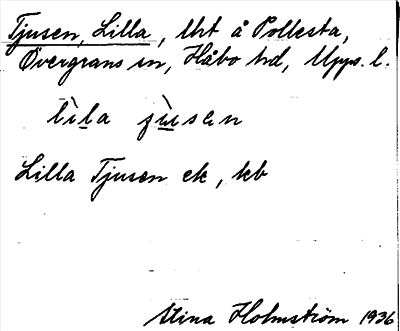 Tjusen, Lilla, Urt å Pollesta,
Övergrans sn, Håbo hd, Upps. l.
lìla jùsen
Lilla Tjusen ek, kb
Stina Holmström 1936